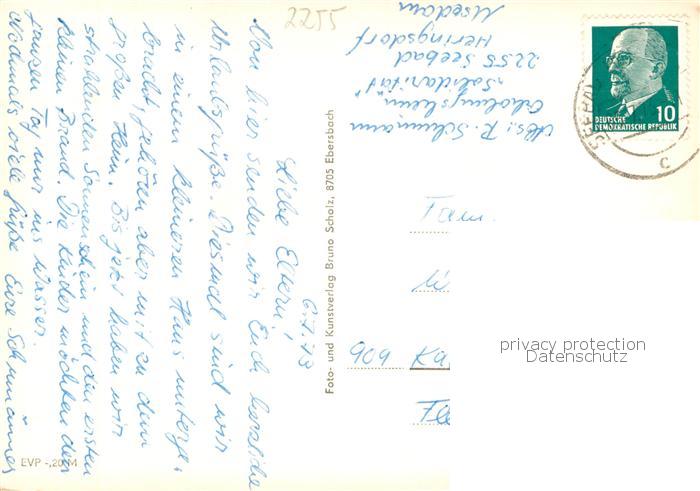 2255
Abs. R. Schumann
Erholungsheim
"Solidarität"
2255 Seebad
Heringsdorf
Usedom
DEUTSCHE
DEMOKRATISCHE REPUBLIK
10
SEEBAD
c
6.7.73
Liebe Eltern!
Von hier senden wir Euch herzliche
Urlaubsgrüße. Diesmal sind wir
in einem kleineren Haus unterge-
bracht, gehören aber mit zu dem
großen Heim. Bis jetzt haben wir
strahlenden Sonnenschein und den ersten
kleinen Brand. Die Kinder möchten den
ganzen Tag nur ins Wasser.
Nochmals viele Grüße Eure Schumänner
Foto- und Kunstverlag Bruno Scholz, 8705 Ebersbach
Fam.
909 Ka
EVP -,20 M
privacy protection
Datenschutz